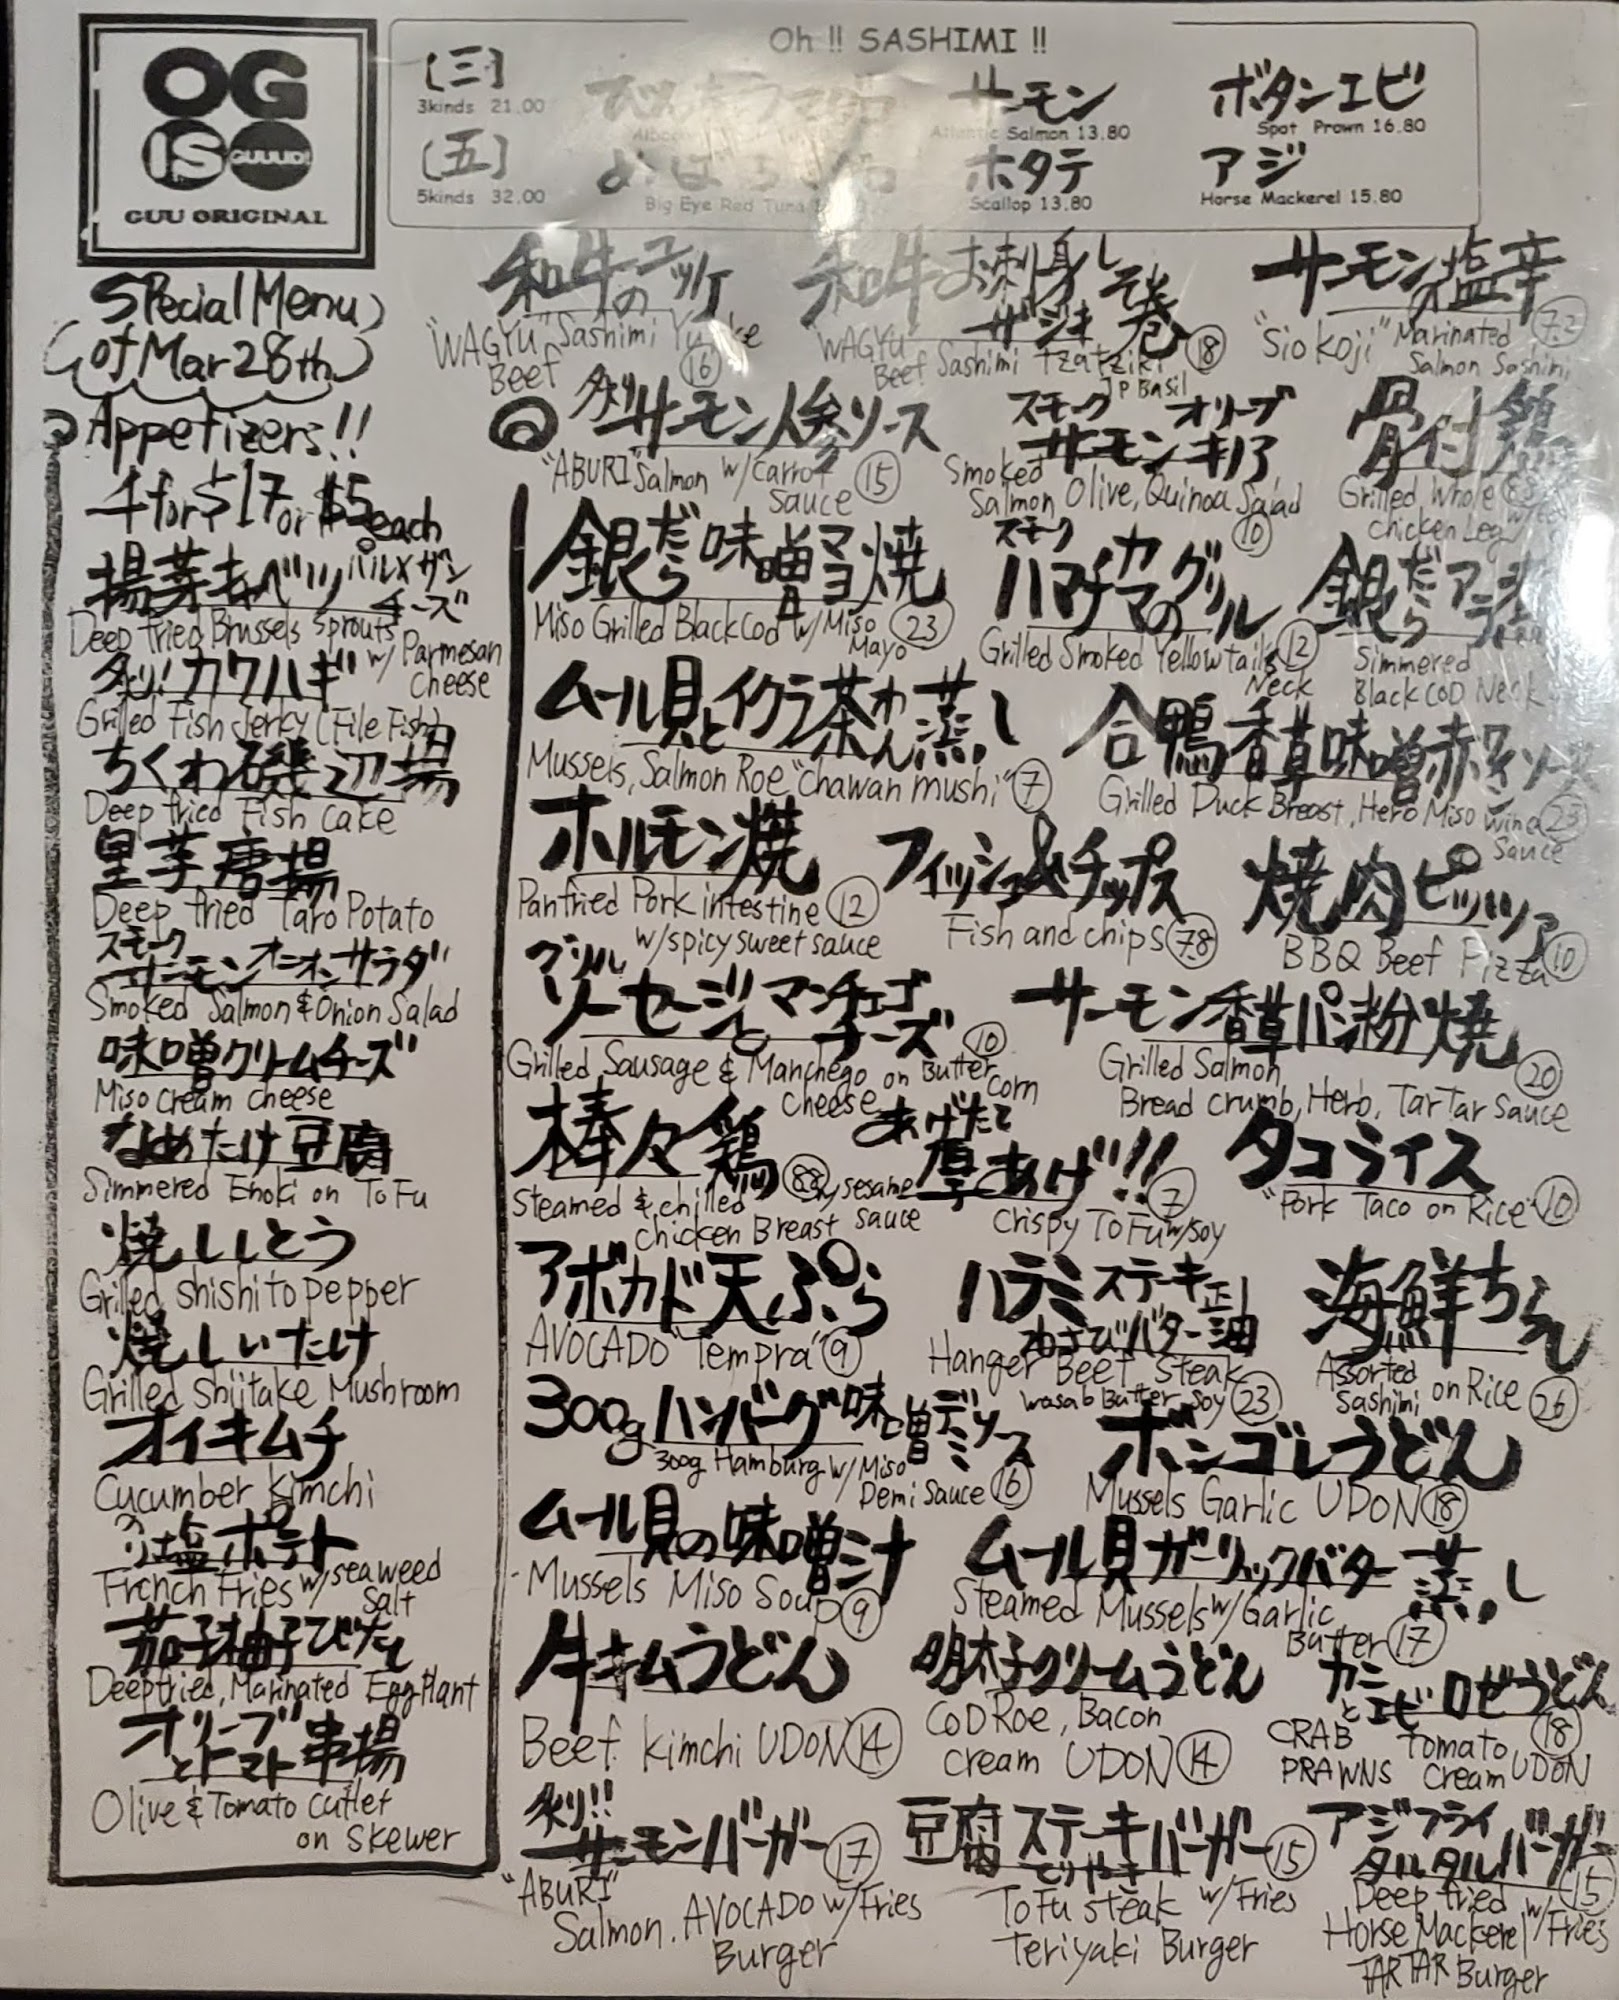 OG
IS GUUUD!
GUU ORIGINAL
Oh !! SASHIMI !!
[三]
3kinds 21.00
[五]
5kinds 32.00
Big Eye Red Tuna
サーモン
Atlantic Salmon 13.80
ホタテ
Scallop 13.80
ボタンエビ
Spot Prawn 16.80
アジ
Horse Mackerel 15.80
Special Menu
of Mar 28th
Appetizers!!
4 for $17 or $5 each
揚芽きゃべつ パルメザンチーズ
Deep fried Brussels sprouts
w/ Parmesan cheese
炙り!カワハギ
Grilled Fish Jerky (File Fish)
ちくわ磯辺揚
Deep fried Fish cake
里芋唐揚
Deep fried Taro Potato
スモーク
サーモンオニオンサラダ
Smoked Salmon & Onion Salad
味噌クリームチーズ
Miso cream cheese
なめたけ豆腐
Simmered Enoki on ToFu
焼ししとう
Grilled shishito pepper
焼しいたけ
Grilled Shiitake Mushroom
オイキムチ
Cucumber kimchi
のり塩ポテト
French Fries w/ seaweed
Salt
茄子柚子びたし
Deepfried, Marinated Eggplant
オリーブ
とトマト串揚
Olive & Tomato cutlet
on skewer
和牛のユッケ
"WAGYU" Sashimi
Beef 16
和牛お刺身しそ巻
ザジキ
WAGYU
Beef Sashimi Tzatziki 18
JP Basil
サーモン塩辛
"Sio Koji" Marinated 7.2
Salmon Sashimi
炙りサーモン人参ソース
"ABURI" Salmon w/ carrot
Sauce 15
スモーク オリーブ
サーモン キノア
Smoked
Salmon Olive, Quinoa Salad
10
骨付鶏
Grilled Whole
chicken Leg
銀だら味噌マヨ焼
Miso Grilled Black Cod w/ Miso
Mayo 23
スモーク
ハマチカマのグリル
Grilled Smoked Yellowtail's 12
Neck
銀だらアラ
Simmered
Black CoD Neck
ムール貝とイクラ茶わん蒸し
Mussels, Salmon Roe "chawan mushi" 7
合鴨香草味噌赤ワインソース
Grilled Duck Breast, Herb Miso wine 23
Sauce
ホルモン焼
Panfried Pork intestine 12
w/ spicy sweet sauce
フィッシュ&チップス
Fish and chips 7.8
焼肉ピッツァ
BBQ Beef Pizza 10
グリル
ソーセージとマンチェゴ
チーズ 10
Grilled Sausage & Manchego on Butter
cheese corn
サーモン香草パン粉焼
Grilled Salmon 20
Bread crumb, Herb, TarTar sauce
棒々鶏
Steamed & chilled 8.8 w/ sesame
chicken Breast sauce
あげたて
厚あげ!! 7
Crispy ToFu w/ soy
タコライス
"Pork Taco on Rice" 10
アボカド天ぷら
AVOCADO "Tempra" 9
ハラミステーキ
わさびバター正油
Hanger Beef Steak
wasabi Butter soy 23
海鮮ちらし
Assorted
Sashimi on Rice 26
300gハンバーグ味噌デミソース
300g Hamburg w/ Miso
Demi Sauce 16
ボンゴレうどん
Mussels Garlic UDON 18
ムール貝の味噌汁
Mussels Miso Soup 9
ムール貝ガーリックバター蒸し
Steamed Mussels w/ Garlic
Butter 17
牛キムうどん
Beef kimchi UDON 14
明太子クリームうどん
CoD Roe, Bacon
cream UDON 14
カニとエビロゼうどん
18
CRAB Tomato
PRAWNS cream UDON
炙り!!
サーモンバーガー 17
"ABURI"
Salmon. AVOCADO w/ Fries
Burger
豆腐ステーキバーガー 15
てりやき
ToFu steak w/ Fries
Teriyaki Burger
アジフライ
タルタルバーガー 15
Deep fried w/ Fries
Horse Mackerel
TARTAR Burger